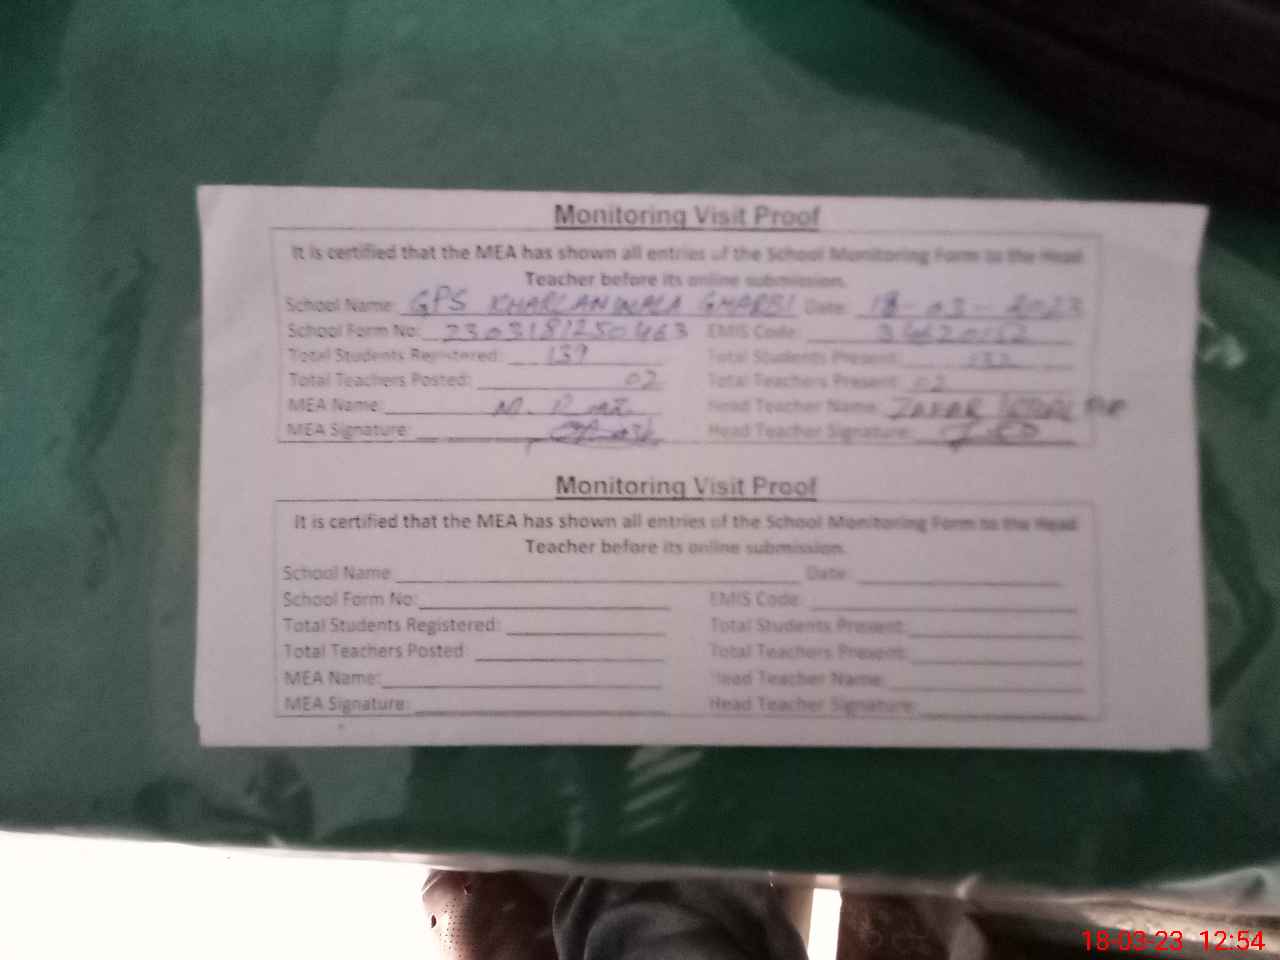 Monitoring Visit Proof
It is certified that the MEA has shown all entries of the School Monitoring Form to the Head
Teacher before its online submission.
School Name: GPS KHARLANWALA GHARBI Date: 18-03-2023
School Form No: 2303181250463 EMIS Code:
Total Students Registered: 139 Total Students Present: 132
Total Teachers Posted: 02 Total Teachers Present: 02
MEA Name: M. Riaz Head Teacher Name: ZAFAR IQBAL
MEA Signature: Head Teacher Signature:
Monitoring Visit Proof
It is certified that the MEA has shown all entries of the School Monitoring Form to the Head
Teacher before its online submission.
School Name Date:
School Form No: EMIS Code:
Total Students Registered: Total Students Present:
Total Teachers Posted Total Teachers Present:
MEA Name: Head Teacher Name:
MEA Signature: Head Teacher Signature:
18-03-23 12:54